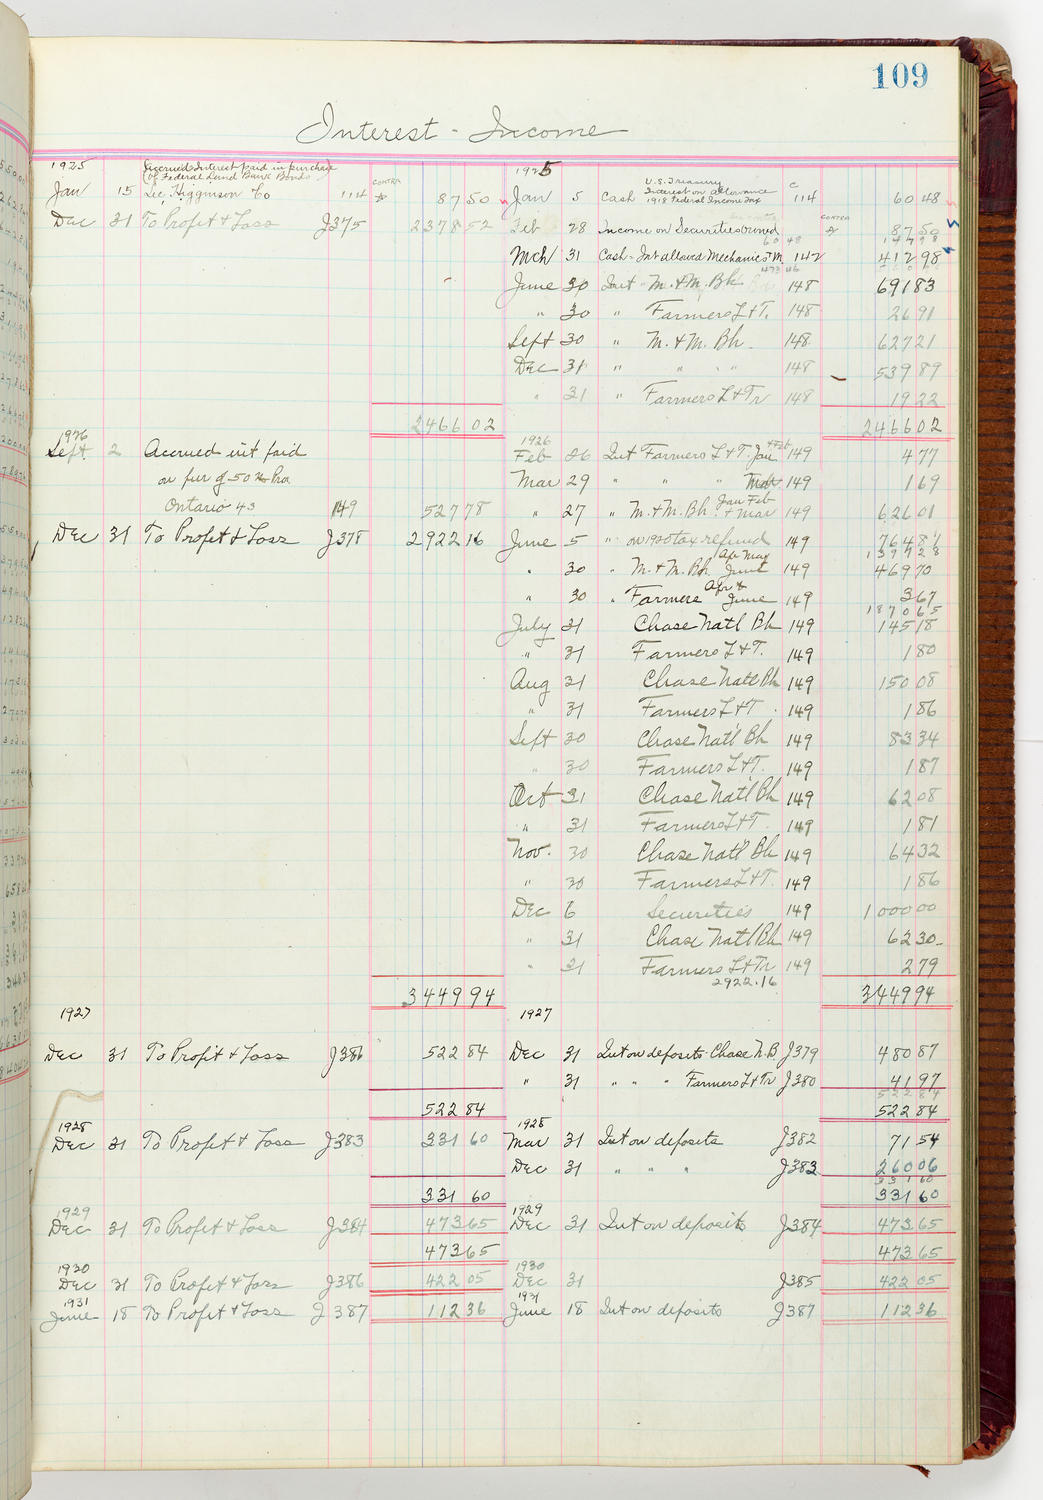 109
Interest - Income
1925 Accrued Interest paid in purchase of Federal Land Bank Bonds
Jan 15 Lee, Higginson & Co 114 CONTRA 87 50
Dec 31 To Profit & Loss J375 2378 52
2466 02
1926
Sept. 2 Accrued int paid
on pur of 50 M Pro
Ontario 43 149 527 78
Dec 31 To Profit & Loss J378 2922 16
3449 94
1927
Dec 31 To Profit & Loss J386 522 84
522 84
1928
Dec 31 To Profit & Loss J383 331 60
331 60
1929
Dec 31 To Profit & Loss J384 473 65
473 65
1930
Dec 31 To Profit & Loss J386 422 05
1931
June 18 To Profit & Loss J387 112 36
1925
Jan 5 Cash U.S. Treasury Interest on allowance 1918 Federal Income Tax C 114 60 48
Feb 28 Income on Securities Owned CONTRA 87 50
60 48 147 98
Mch 31 Cash - Int allowed Mechanics & M. 142 412 98
473 46
June 30 Int M. & M. Bk 148 691 83
" 30 " Farmers L & T. 148 26 91
Sept 30 " M. & M. Bk. 148 627 21
Dec 31 " " " " 148 539 89
" 31 " Farmers L & Tr 148 19 22
2466 02
1926
Feb 26 Int Farmers L & T. Jan & Feb 149 4 77
Mar 29 " " " Mar 149 1 69
" 27 " M. & M. Bk Jan Feb & Mar 149 626 01
June 5 " on 1920 tax refund 149 764 81
1397 28
" 30 " M. & M. Bk Apr May June 149 469 70
" 30 " Farmers Apr & June 149 3 67
1870 65
July 31 Chase Natl Bk 149 145 18
" 31 Farmers L & T. 149 1 80
Aug 31 Chase Natl Bk 149 150 08
" 31 Farmers L & T. 149 1 86
Sept 30 Chase Nat'l Bk 149 83 34
" 30 Farmers L & T. 149 1 87
Oct 31 Chase Nat'l Bk 149 62 08
" 31 Farmers L & T. 149 1 81
Nov. 30 Chase Nat'l Bk 149 64 32
" 30 Farmers L & T. 149 1 86
Dec 6 Securities 149 1000 00
" 31 Chase Nat'l Bk 149 62 30
" 31 Farmers L & Tr 149 2 79
2922.16
3449 94
1927
Dec 31 Int on deposits Chase N.B. J379 480 87
" 31 " " " Farmers L & Tr J380 41 97
522 84
522 84
1928
Mar 31 Int on deposits J382 71 54
Dec 31 " " " J383 260 06
331 60
331 60
1929
Dec 31 Int on deposits J384 473 65
473 65
1930
Dec 31 J385 422 05
1931
June 18 Int on deposits J387 112 36